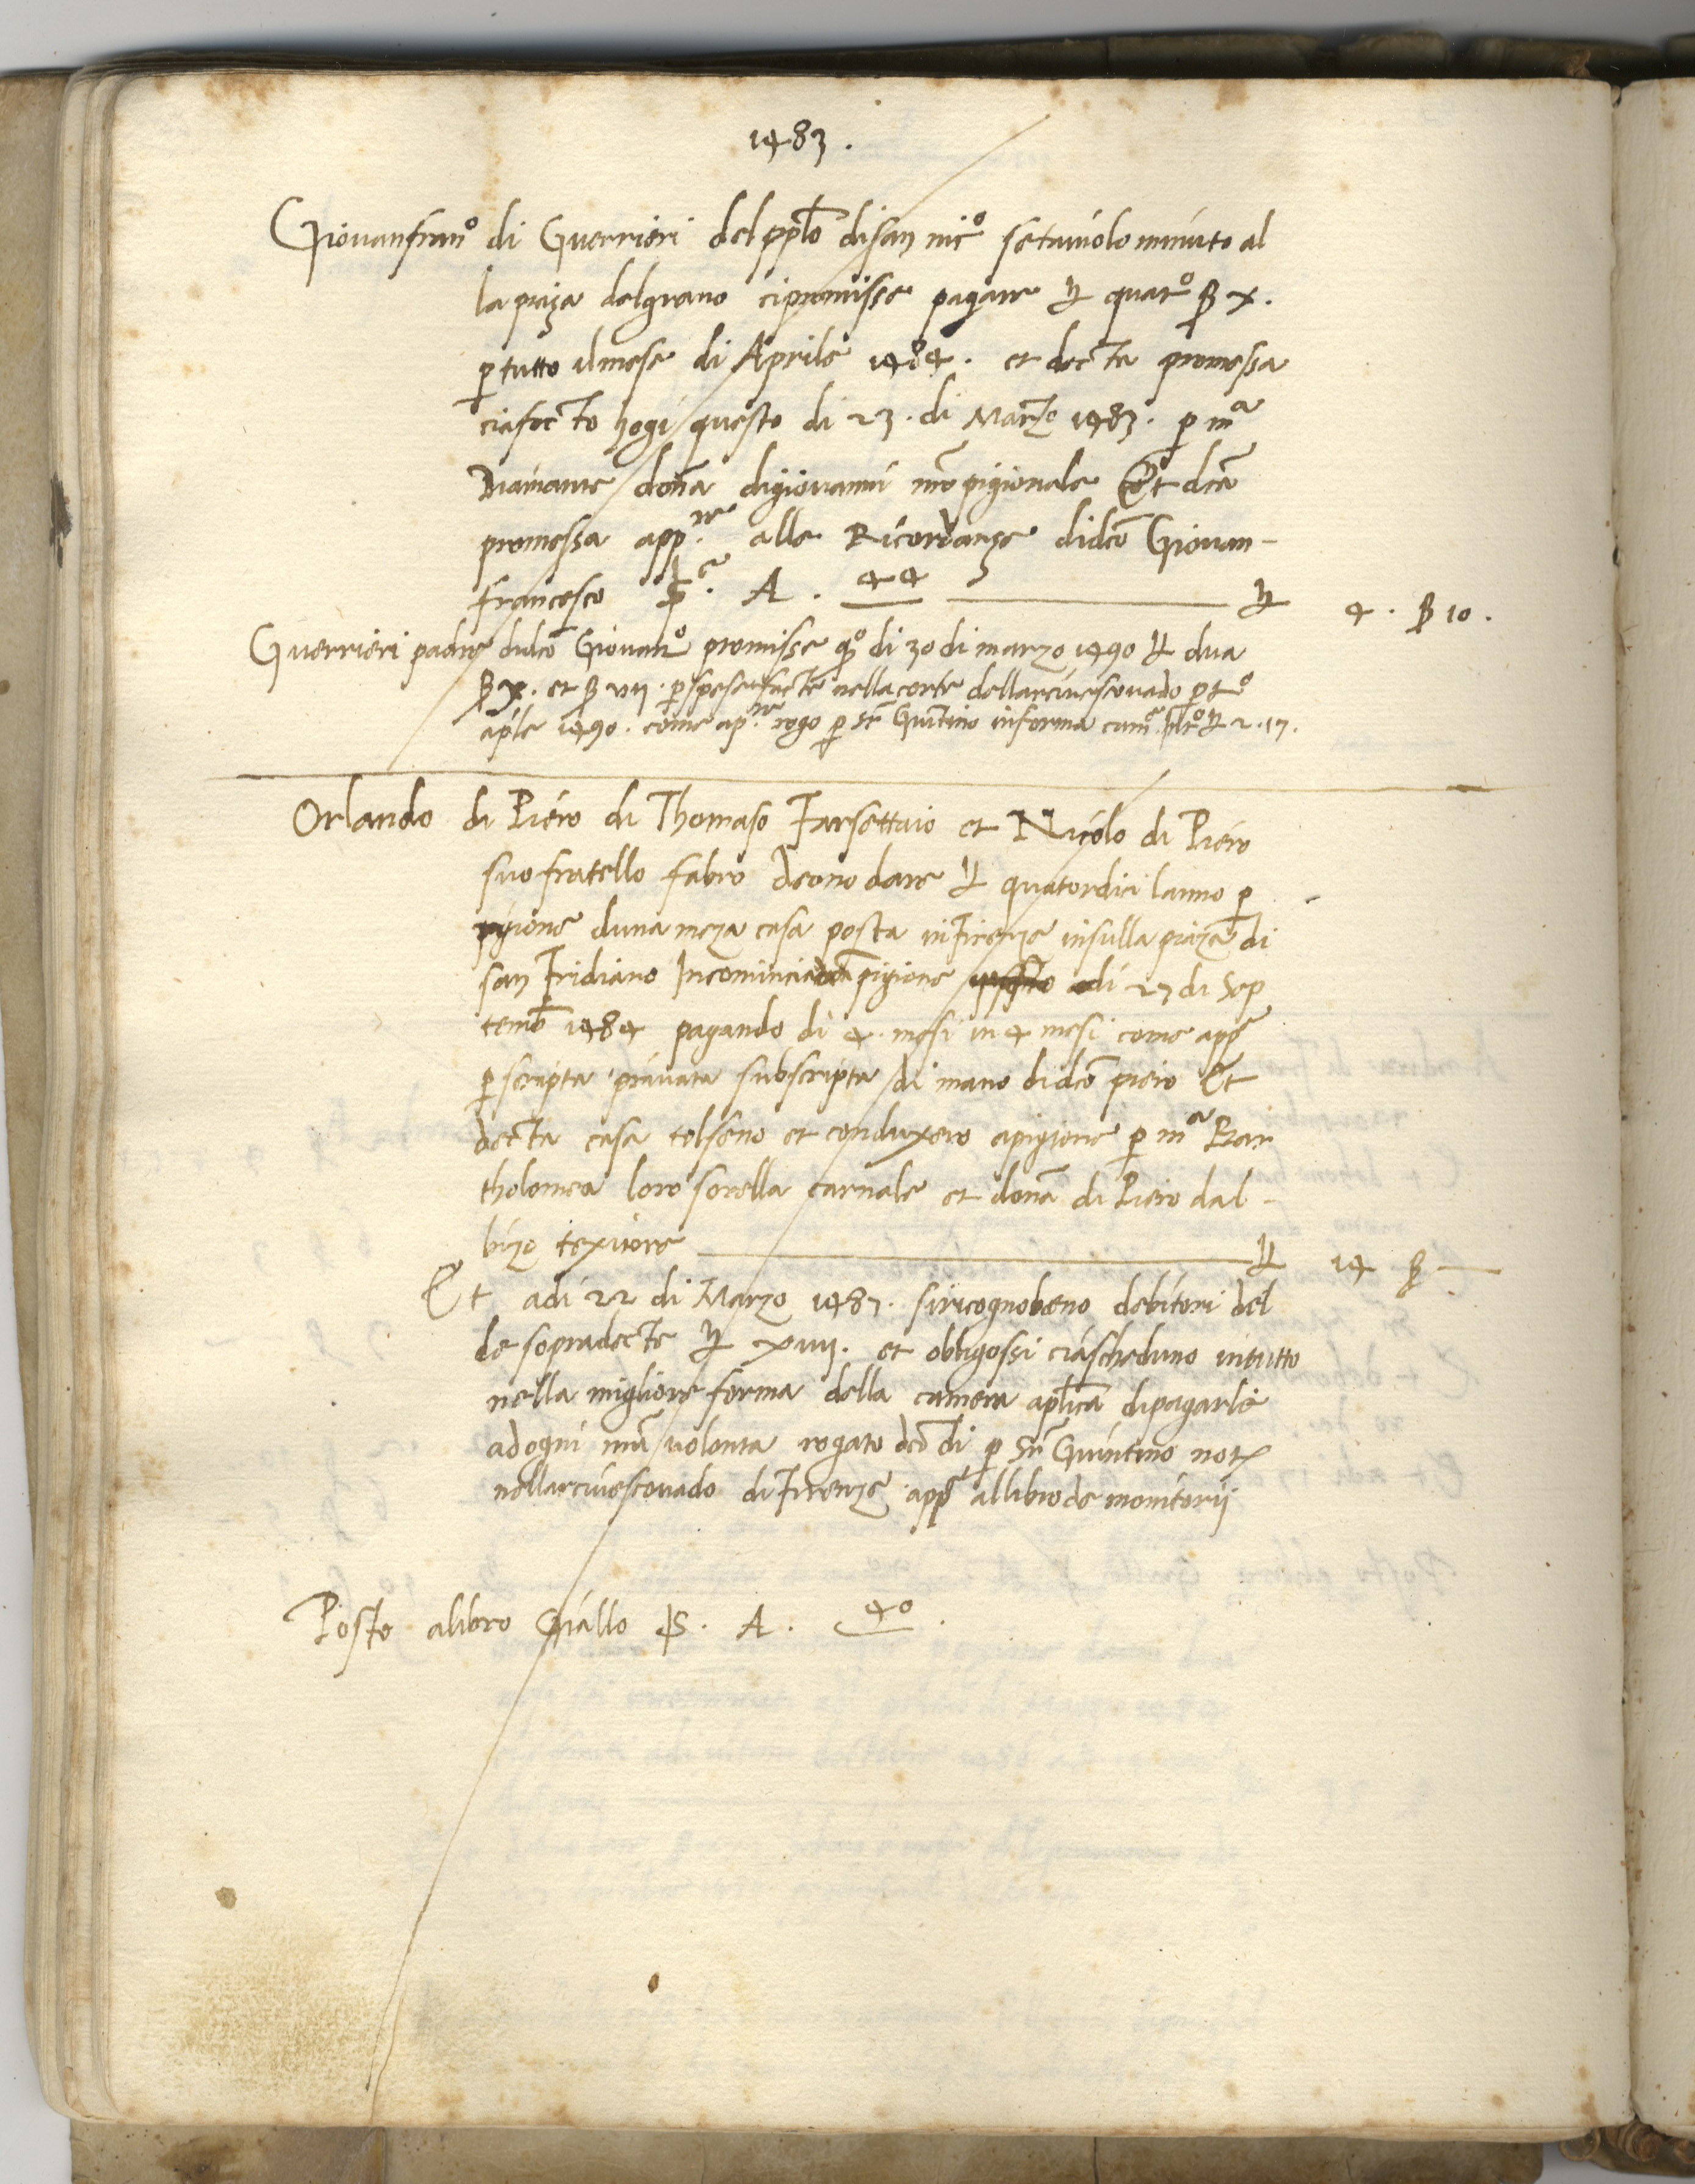 1483.
Giovanfranº di Guerrieri del pplo di san nicº setaiuolo minuto al
la piaza del grano ci promisse pagare ₶ quatº ß x.
p tutto il mese di Aprile 1484. et decta promessa
cia fecto hogi questo di 23. di Marzo 1483. p mª
Diamante dona di giovanni nro pigionale Et dca
promessa app.re alle Ricordanze di dco Giovan-
francesco A. 44 ₶ 4. ß 10.
Guerrieri padre di dco Giovanfº promisse qº di 30 di marzo 1490 ₶ dua
ß x. et ß vii. p spese facte nella corte dell arcivescovado p tº
aple 1490. come ap.re rogo p sr Guintino in forma camª ₶ 2.17.
Orlando di Piero di Thomaso Farsettaio et Nicolo di Piero
suo fratello fabro deono dare ₶ quatordici lanno p
pigione duna meza casa posta in Firenze in sulla piaza di
san Fridiano Incominciado pigione adi 27 di Sep
temb 1484 pagando di 4. mesi in 4 mesi come appe
p scripta privata subscripta di mano di dco piero Et
decta casa tolseno et conduxero a pigione p mª Bar
tholomea loro sorella carnale et dona di Piero dal-
bizo texitore ₶ 14 ß —
Et adi 22 di Marzo 1487. si ricognobeno debitori del
de sopradecte ₶ xiiii. et obligossi ciascheduno in tutto
nella migliore forma della camera aplica di pagarle
ad ogni mia volonta rogato dco di p sr Guintino not
nell arcivescovado di Firenze appe al libro de monitorii
Posto a libro Giallo S. A. 40.